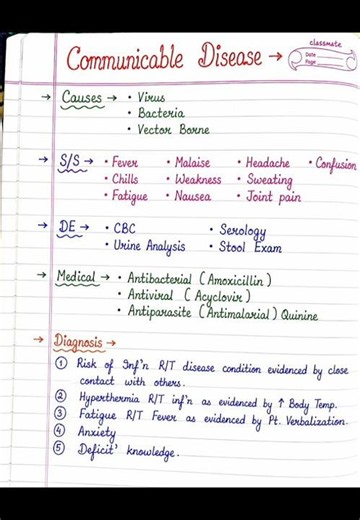 classmate
Date
Page
Communicable Disease →
→ Causes → • Virus
• Bacteria
• Vector Borne
→ S/S → • Fever • Malaise • Headache • Confusion
• Chills • Weakness • Sweating
• Fatigue • Nausea • Joint pain
→ DE → • CBC • Serology
• Urine Analysis • Stool Exam
→ Medical → • Antibacterial (Amoxicillin)
• Antiviral (Acyclovir)
• Antiparasite (Antimalarial) Quinine
→ Diagnosis →
① Risk of Inf'n R/T disease condition evidenced by close
contact with others.
② Hyperthermia R/T inf'n as evidenced by ↑ Body Temp.
③ Fatigue R/T Fever as evidenced by Pt. Verbalization.
④ Anxiety
⑤ Deficit' knowledge.